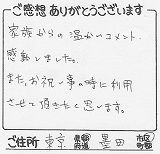 ご感想 ありがとうございます
家族からの温かいコメント、
感動しました。
また、お祝い事の時に利用
させて頂きたく思います。
ご住所 東京 都道府県 墨田 市区町郡